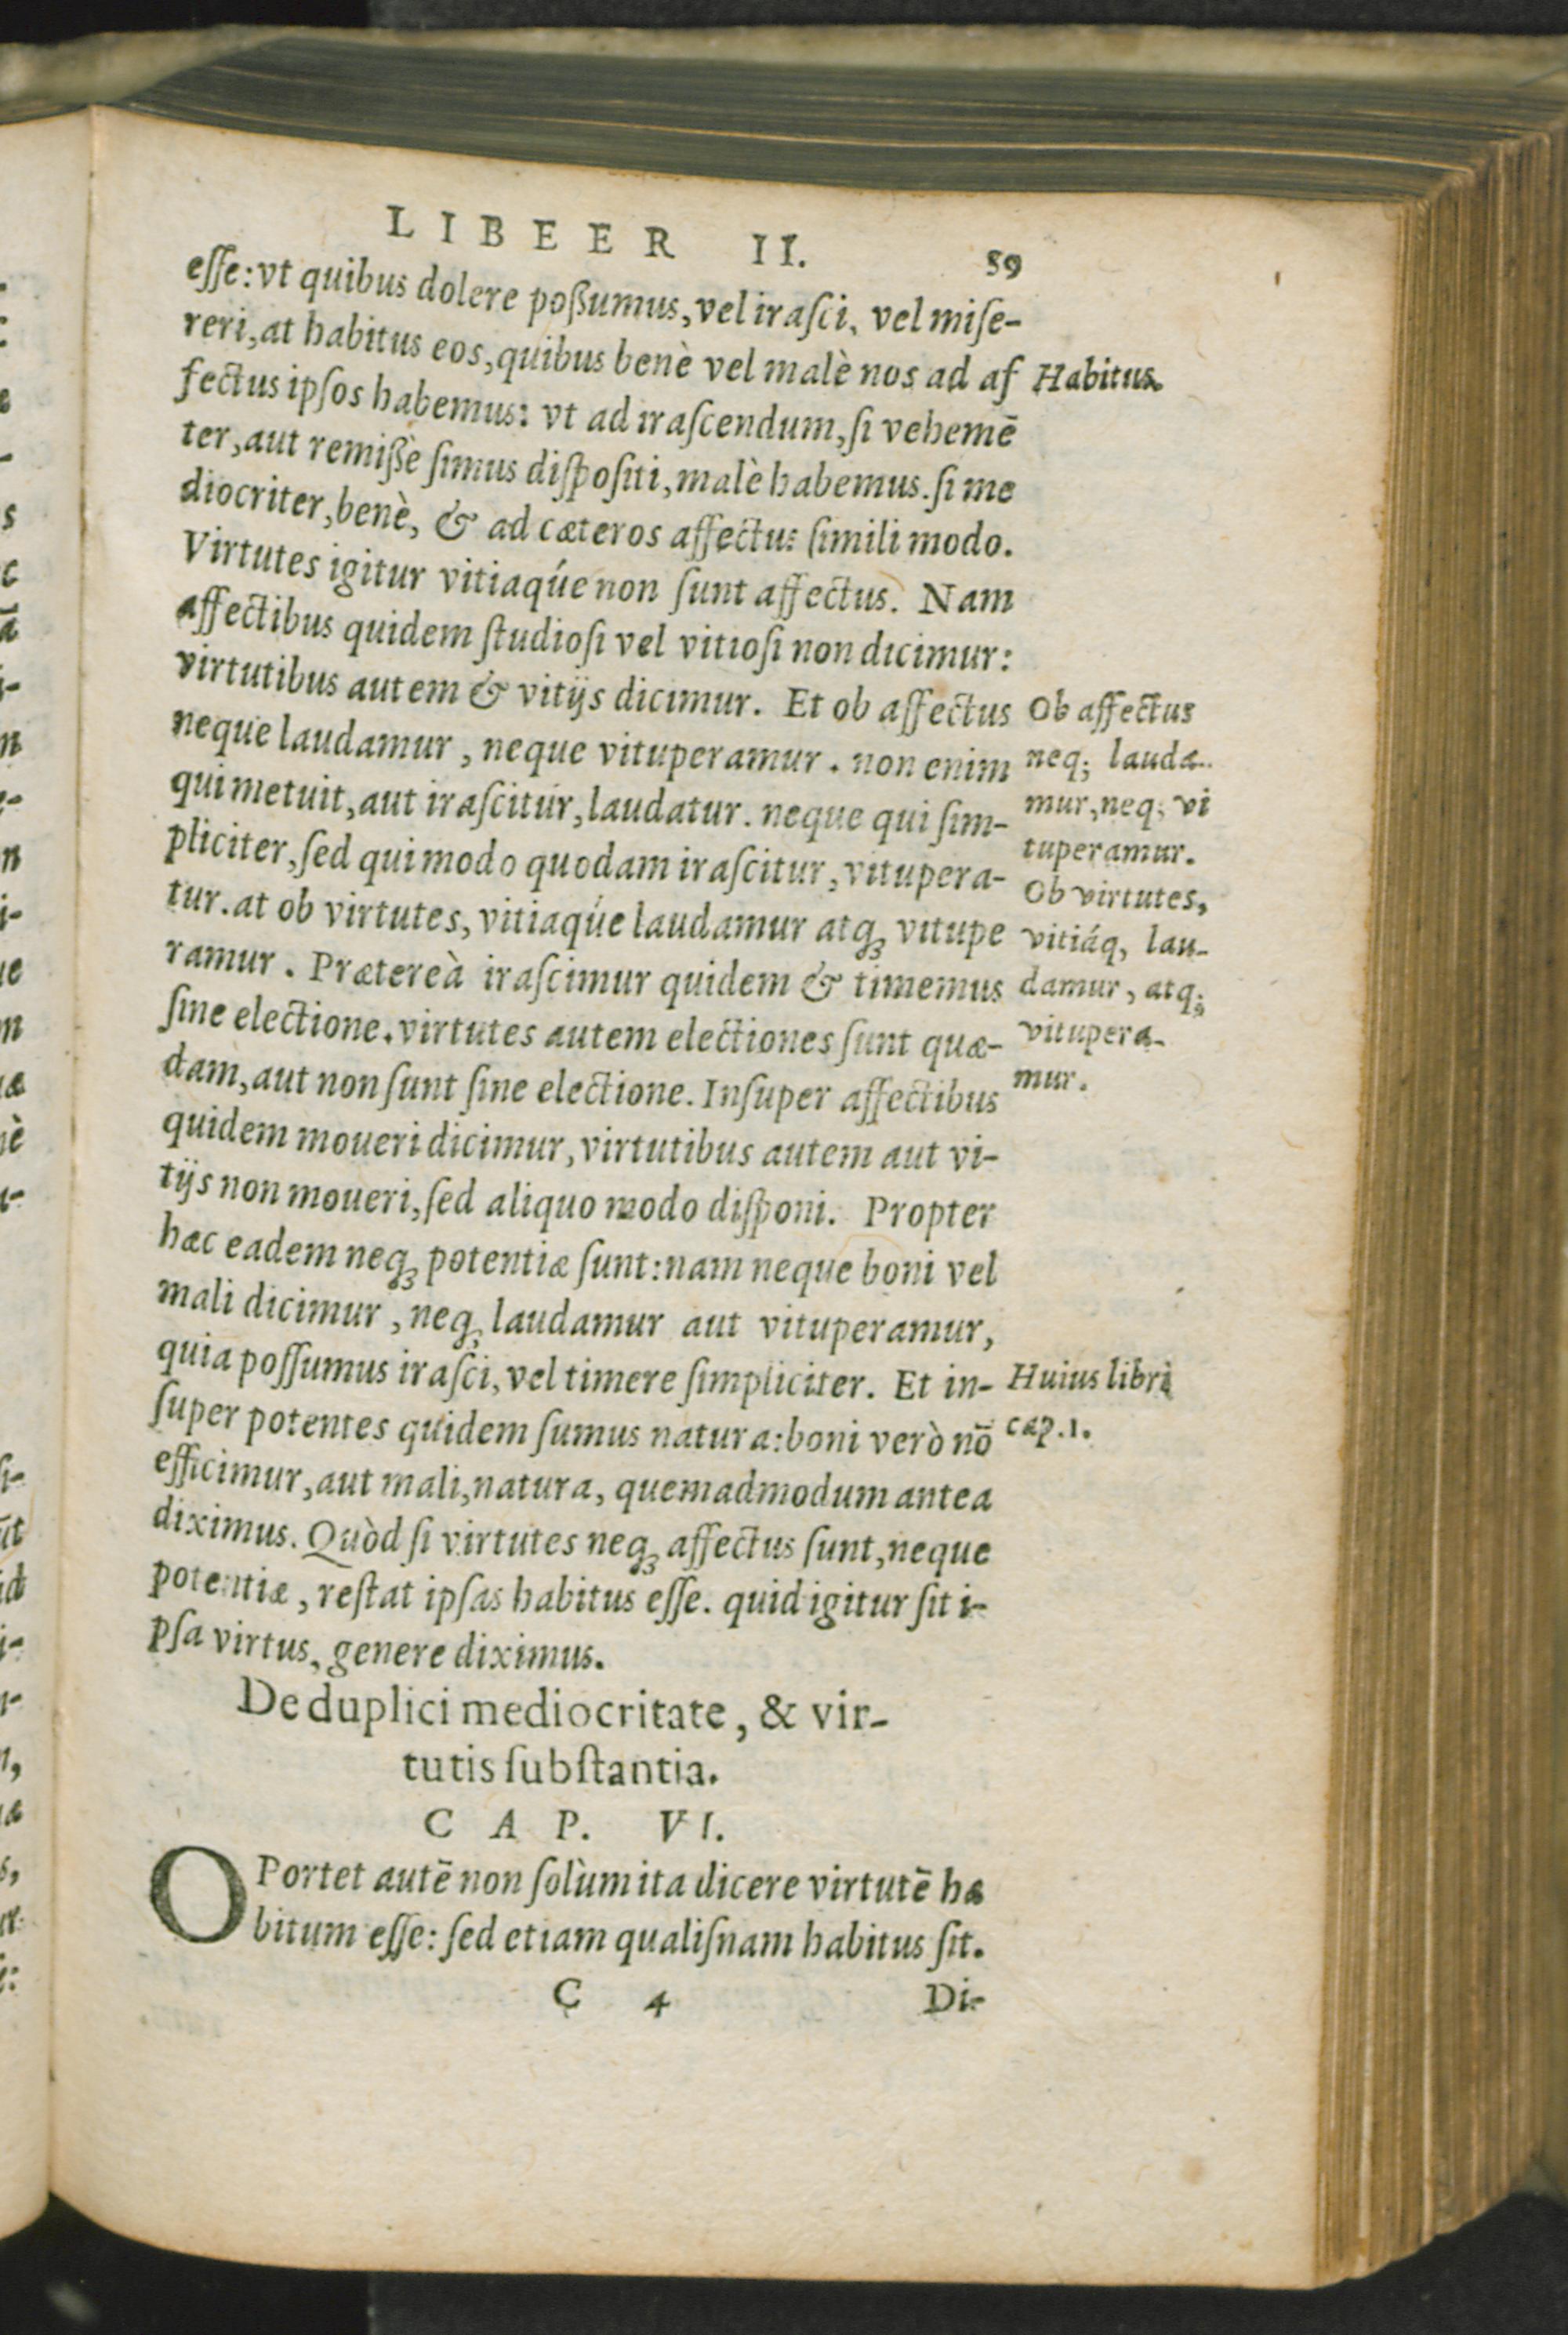 LIBEER II. 59
eſſe: vt quibus dolere poßumus, vel iraſci, vel miſe-
reri, at habitus eos, quibus benè vel malè nos ad af
fectus ipſos habemus: vt ad iraſcendum, ſi vehemē
ter, aut remißè ſimus diſpoſiti, malè habemus. ſi me
diocriter, benè, & ad cæteros affectus ſimili modo.
Virtutes igitur vitiaq́ue non ſunt affectus. Nam
affectibus quidem ſtudioſi vel vitioſi non dicimur:
virtutibus autem & vitijs dicimur. Et ob affectus
neque laudamur, neque vituperamur. non enim
qui metuit, aut iraſcitur, laudatur. neque qui ſim-
pliciter, ſed qui modo quodam iraſcitur, vitupera-
tur. at ob virtutes, vitiaq́ue laudamur atqꝫ vitupe
ramur. Prætereà iraſcimur quidem & timemus
ſine electione. virtutes autem electiones ſunt quæ-
dam, aut non ſunt ſine electione. Inſuper affectibus
quidem moueri dicimur, virtutibus autem aut vi-
tijs non moueri, ſed aliquo modo diſponi. Propter
hæc eadem neqꝫ potentiæ ſunt: nam neque boni vel
mali dicimur, neqꝫ laudamur aut vituperamur,
quia poſſumus iraſci, vel timere ſimpliciter. Et in-
ſuper potentes quidem ſumus natura: boni verò nō
efficimur, aut mali, natura, quemadmodum antea
diximus. Quòd ſi virtutes neqꝫ affectus ſunt, neque
potentiæ, reſtat ipſas habitus eſſe. quid igitur ſit i-
pſa virtus, genere diximus.
De duplici mediocritate, & vir-
tutis ſubſtantia.
CAP. VI.
OPortet autē non ſolùm ita dicere virtutē ha
bitum eſſe: ſed etiam qualiſnam habitus ſit.
C 4 Di-
Habitus.
Ob affectus
neq; lauda-
mur, neq; vi
tuperamur.
Ob virtutes,
vitiáq, lau-
damur, atq;
vitupera-
mur.
Huius libri
cap. 1.